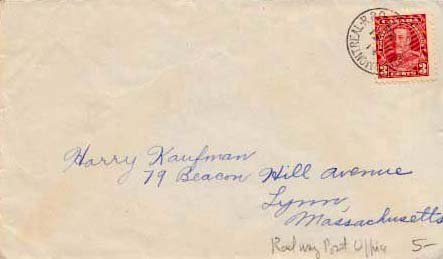 MONTREAL-R.P.O.
CANADA
3 3
CENTS
Harry Kaufman
79 Beacon Hill Avenue
Lynn,
Massachusetts
Railway Post Office 5-